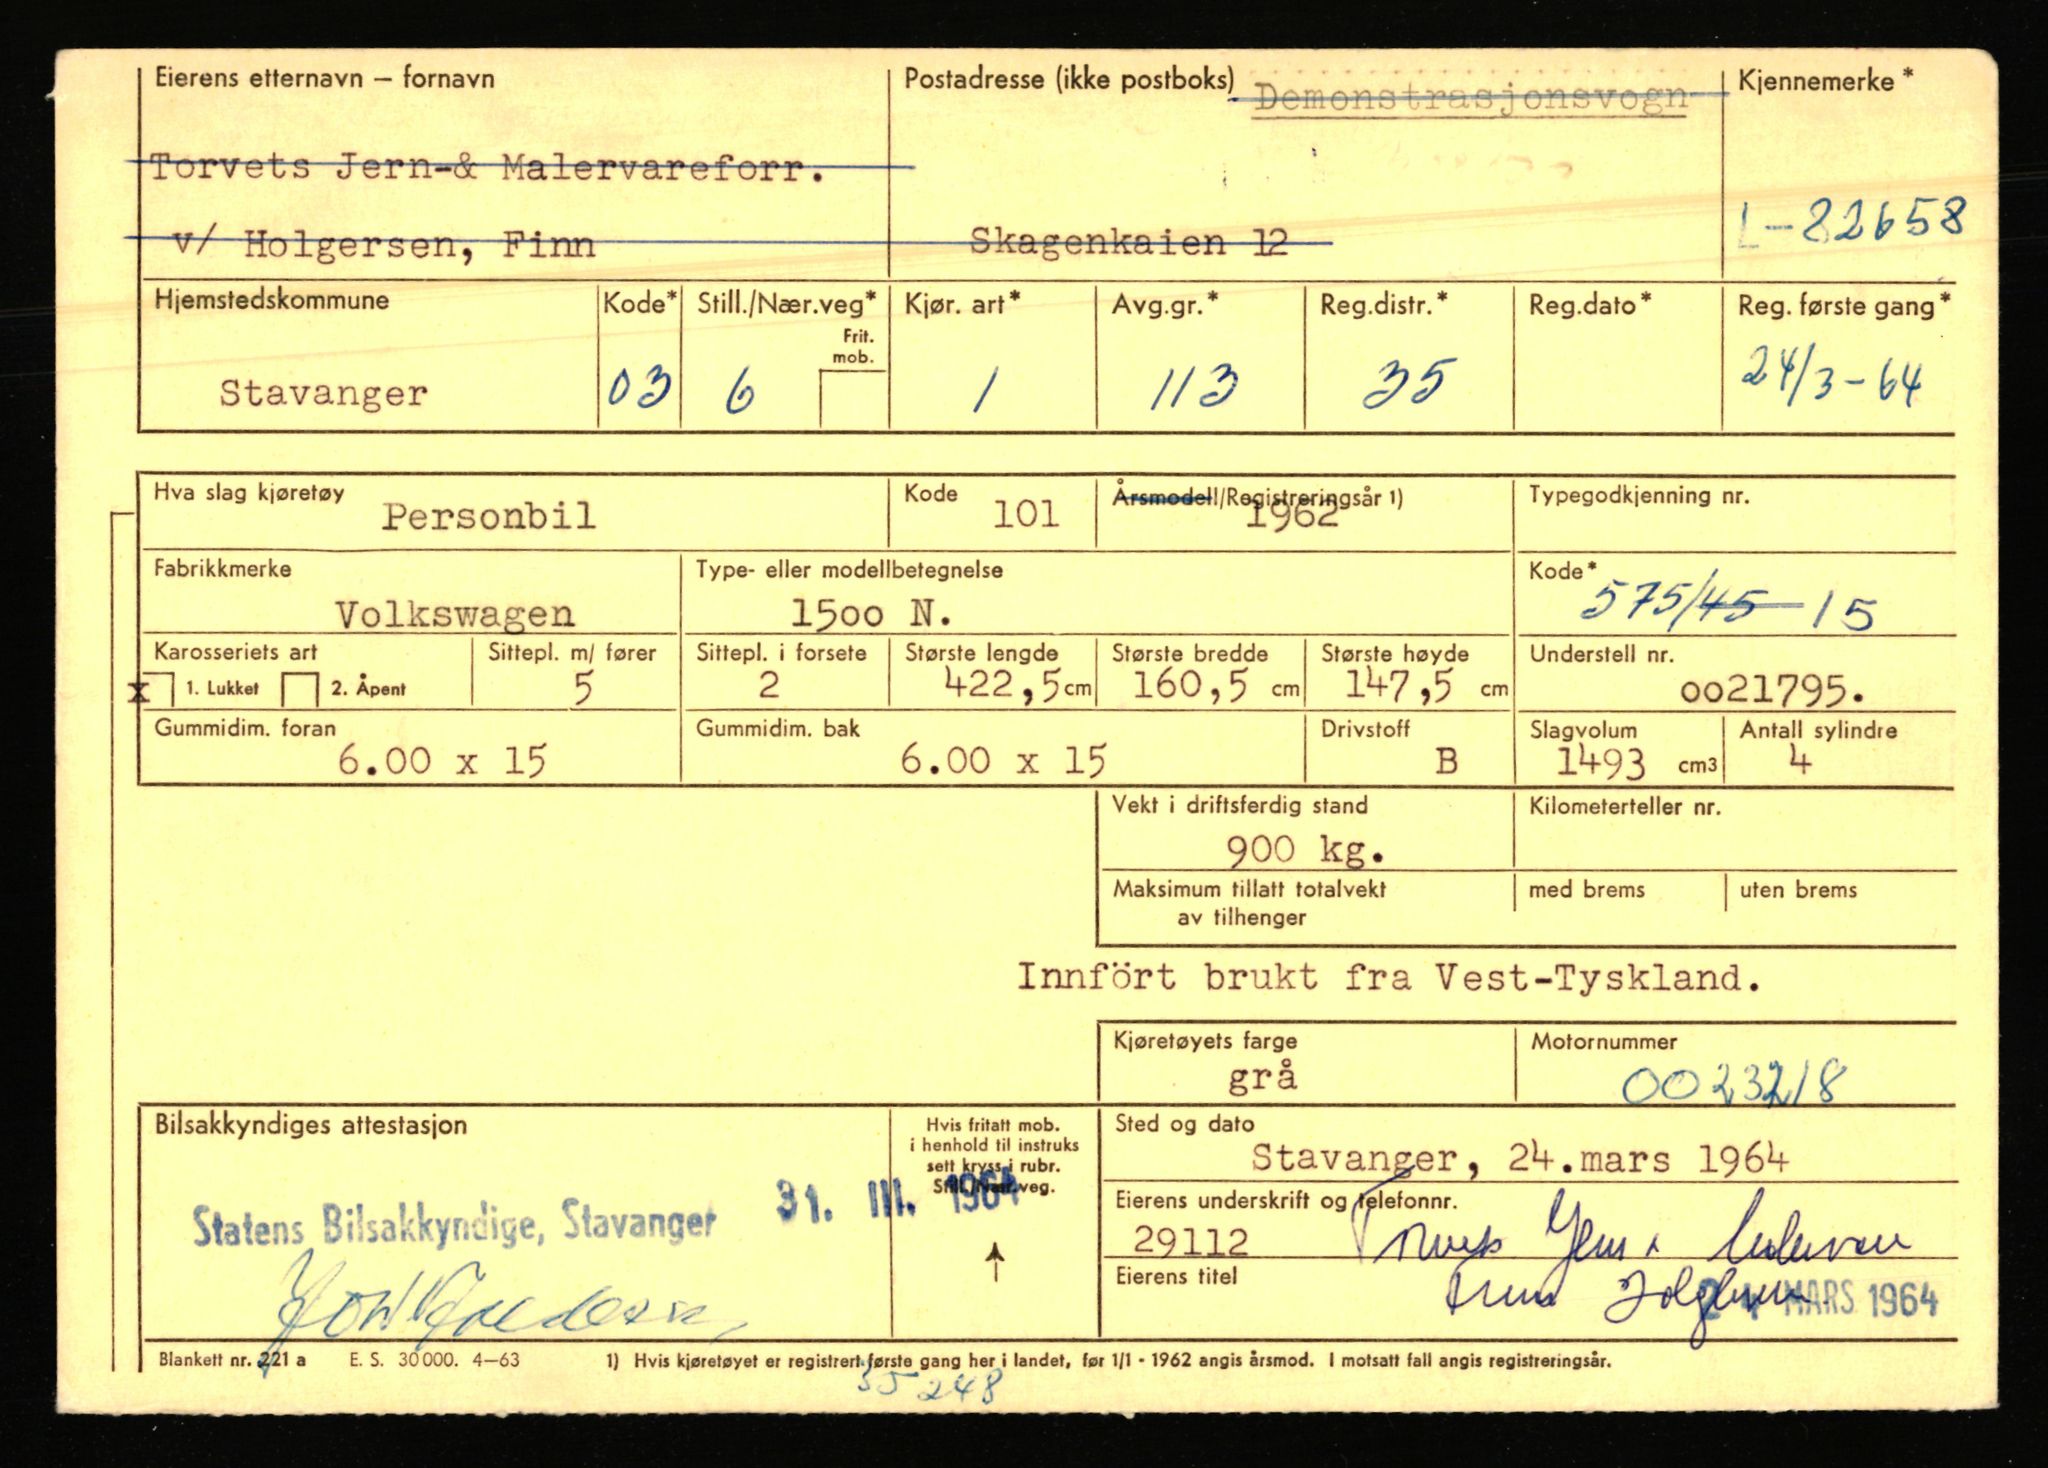 Eierens etternavn – fornavn
Postadresse (ikke postboks)
Demonstrasjonsvogn
Kjennemerke*
Torvets Jern-& Malervareforr.
v/ Holgersen, Finn
Skagenkaien 12
L-82658
Hjemstedskommune
Kode*
Still./Nær.veg*
Frit. mob.
Kjør. art*
Avg.gr.*
Reg.distr.*
Reg.dato*
Reg. første gang*
Stavanger
03
6
1
113
35
24/3-64
Hva slag kjøretøy
Personbil
Kode
101
Årsmodell/Registreringsår 1)
1962
Typegodkjenning nr.
Fabrikkmerke
Volkswagen
Type- eller modellbetegnelse
15oo N.
Kode*
575/45 15
Karosseriets art
x 1. Lukket 2. Åpent
Sittepl. m/ fører
5
Sittepl. i forsete
2
Største lengde
422,5 cm
Største bredde
160,5 cm
Største høyde
147,5 cm
Understell nr.
oo21795.
Gummidim. foran
6.00 x 15
Gummidim. bak
6.00 x 15
Drivstoff
B
Slagvolum
1493 cm3
Antall sylindre
4
Vekt i driftsferdig stand
900 kg.
Kilometerteller nr.
Maksimum tillatt totalvekt
av tilhenger
med brems
uten brems
Innfört brukt fra Vest-Tyskland.
Kjøretøyets farge
grå
Motornummer
0023218
Bilsakkyndiges attestasjon
Hvis fritatt mob.
i henhold til instruks
sett kryss i rubr.
Still./Nær.veg.
Statens Bilsakkyndige, Stavanger
31. III. 1964
Sted og dato
Stavanger, 24.mars 1964
Eierens underskrift og telefonnr.
29112
Eierens titel
24 MARS 1964
Blankett nr. 221 a E. S. 30000. 4–63
1) Hvis kjøretøyet er registrert første gang her i landet, før 1/1 - 1962 angis årsmod. I motsatt fall angis registreringsår.
35248